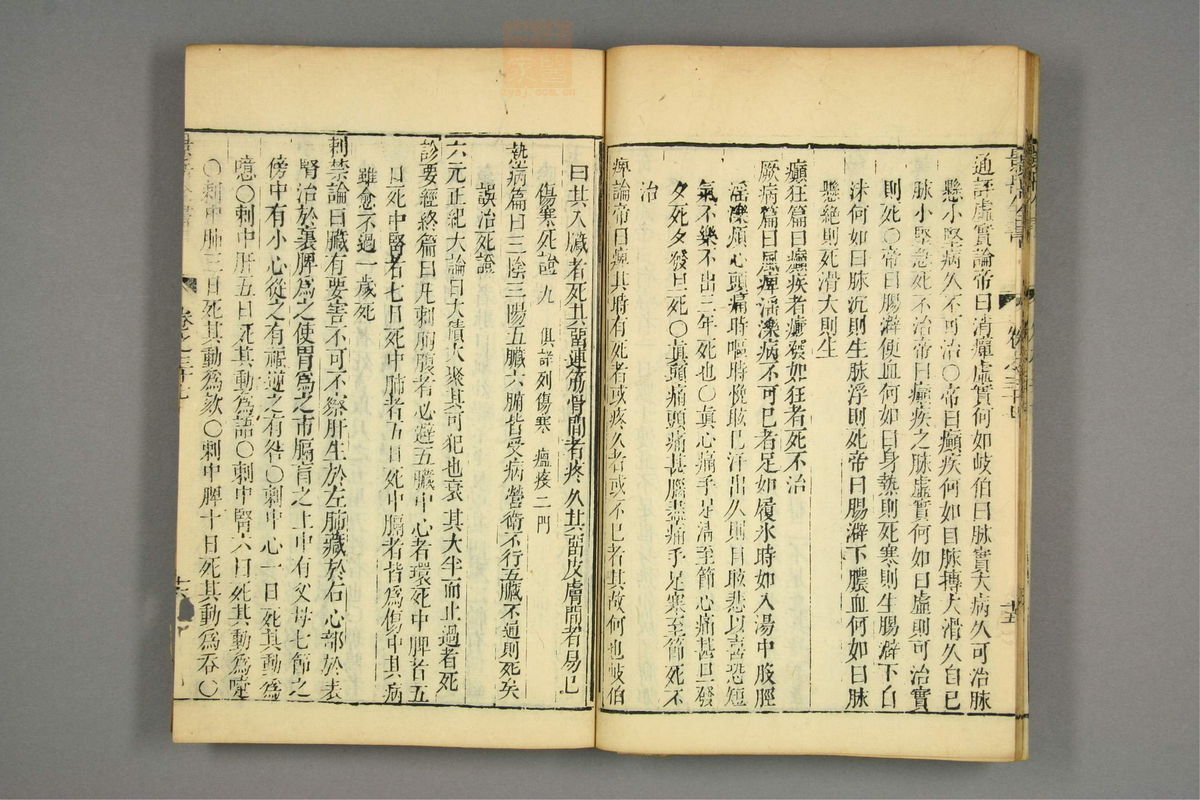 通評虛實論帝曰消癉虛實何如岐伯曰脉實大病久可治脉
懸小堅病久不可治○帝曰癲疾何如曰脉搏大滑久自已
脉小堅急死不治帝曰癲疾之脉虛實何如曰虛則可治實
則死○帝曰腸澼便血何如曰身熱則死寒則生腸澼下白
沫何如曰脉沉則生脉浮則死帝曰腸澼下膿血何如曰脉
懸絕則死滑大則生
癲狂篇曰癲疾者癲發如狂者死不治
厥病篇曰風痺淫濼病不可已者足如履氷時如入湯中股脛
淫濼煩心頭痛時嘔時悗眩已汗出久則目眩悲以喜恐短
氣不樂不出三年死也○眞心痛手足凊至節心痛甚旦發
夕死夕發旦死○眞頭痛頭痛甚腦盡痛手足寒至節死不
治
痺論帝曰痺其時有死者或疼久者或不巳者其故何也岐伯
曰其入臟者死其留連筋骨間者疼久其留皮膚間者易已
傷寒死證 九 俱詳列傷寒 瘟疫二門
熱病篇曰三陰三陽五臟六腑皆受病營衛不行五臟不通則死矣
誤治死證
六元正紀大論曰大積大聚其可犯也衰其大半而止過者死
診要經終篇曰凡刺胸腹者必避五臟中心者環死中脾者五
日死中腎者七日死中肺者五日死中膈者皆爲傷中其病
雖愈不過一歲死
刺禁論曰臟有要害不可不察肝生於左肺藏於右心部於表
腎治於裏脾爲之使胃爲之市膈肓之上中有父母七節之
傍中有小心從之有福逆之有咎○刺中心一日死其動爲
噫○刺中肝五日死其動爲語○刺中腎六日死其動爲嚏
○刺中肺三日死其動爲欬○刺中脾十日死其動爲吞○